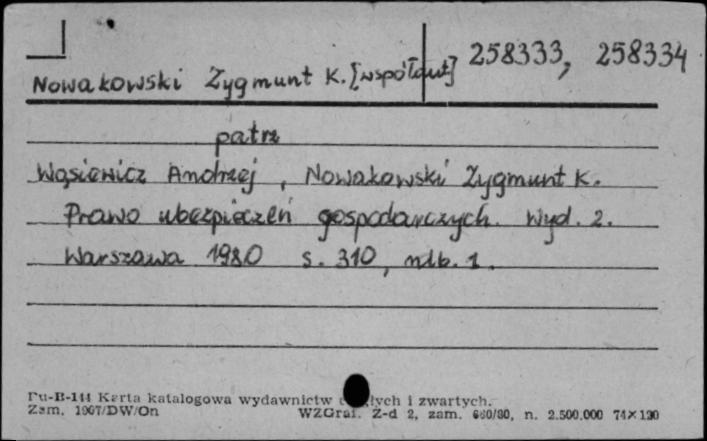 258333, 258334
Nowakowski Zygmunt K. [współaut]
patrz
Wąsiewicz Andrzej, Nowakowski Zygmunt K.
Prawo ubezpieczeń gospodarczych. Wyd. 2.
Warszawa 1980 s. 310, nlb. 1.
Pu-B-144 Karta katalogowa wydawnictw i zwartych.
Zam. 1907/DW/On WZGraf. Z-d 2, zam. 680/80, n. 2.500.000 74×120